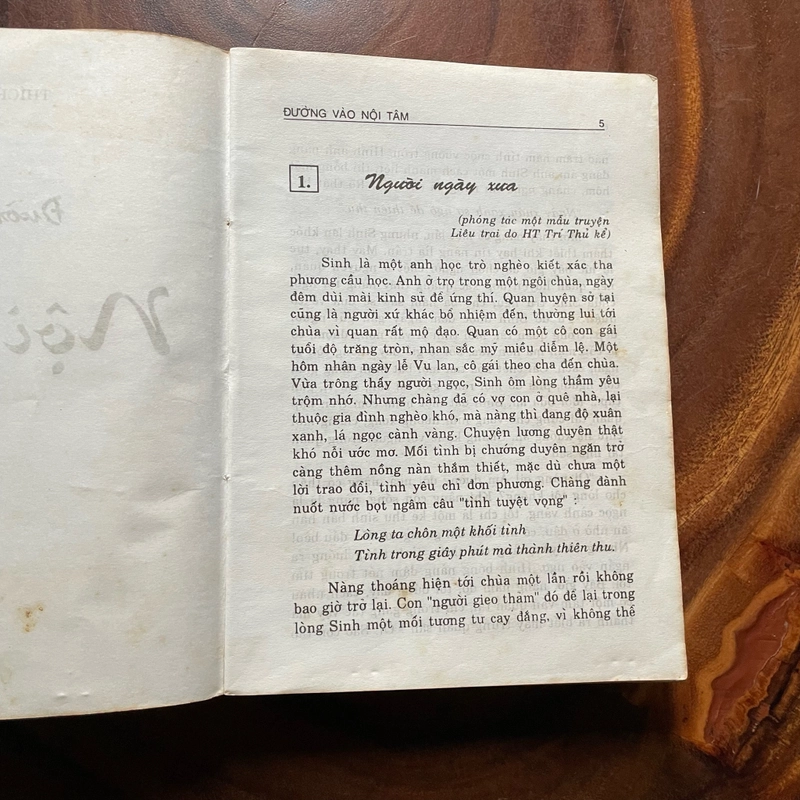 ĐƯỜNG VÀO NỘI TÂM 5
1. Người ngày xưa
(phóng tác một mẩu truyện
Liêu trai do HT Trí Thủ kể)
Sinh là một anh học trò nghèo kiết xác tha
phương cầu học. Anh ở trọ trong một ngôi chùa, ngày
đêm dùi mài kinh sử để ứng thí. Quan huyện sở tại
cũng là người xứ khác bổ nhiệm đến, thường lui tới
chùa vì quan rất mộ đạo. Quan có một cô con gái
tuổi độ trăng tròn, nhan sắc mỹ miều diễm lệ. Một
hôm nhân ngày lễ Vu lan, cô gái theo cha đến chùa.
Vừa trông thấy người ngọc, Sinh ôm lòng thầm yêu
trộm nhớ. Nhưng chàng đã có vợ con ở quê nhà, lại
thuộc gia đình nghèo khó, mà nàng thì đang độ xuân
xanh, lá ngọc cành vàng. Chuyện lương duyên thật
khó nỗi ước mơ. Mối tình bị chướng duyên ngăn trở
càng thêm nồng nàn thắm thiết, mặc dù chưa một
lời trao đổi, tình yêu chỉ đơn phương. Chàng đành
nuốt nước bọt ngâm câu "tình tuyệt vọng" :
Lòng ta chôn một khối tình
Tình trong giây phút mà thành thiên thu.
Nàng thoáng hiện tới chùa một lần rồi không
bao giờ trở lại. Con "người gieo thảm" đó để lại trong
lòng Sinh một mối tương tư cay đắng, vì không thể
Nội